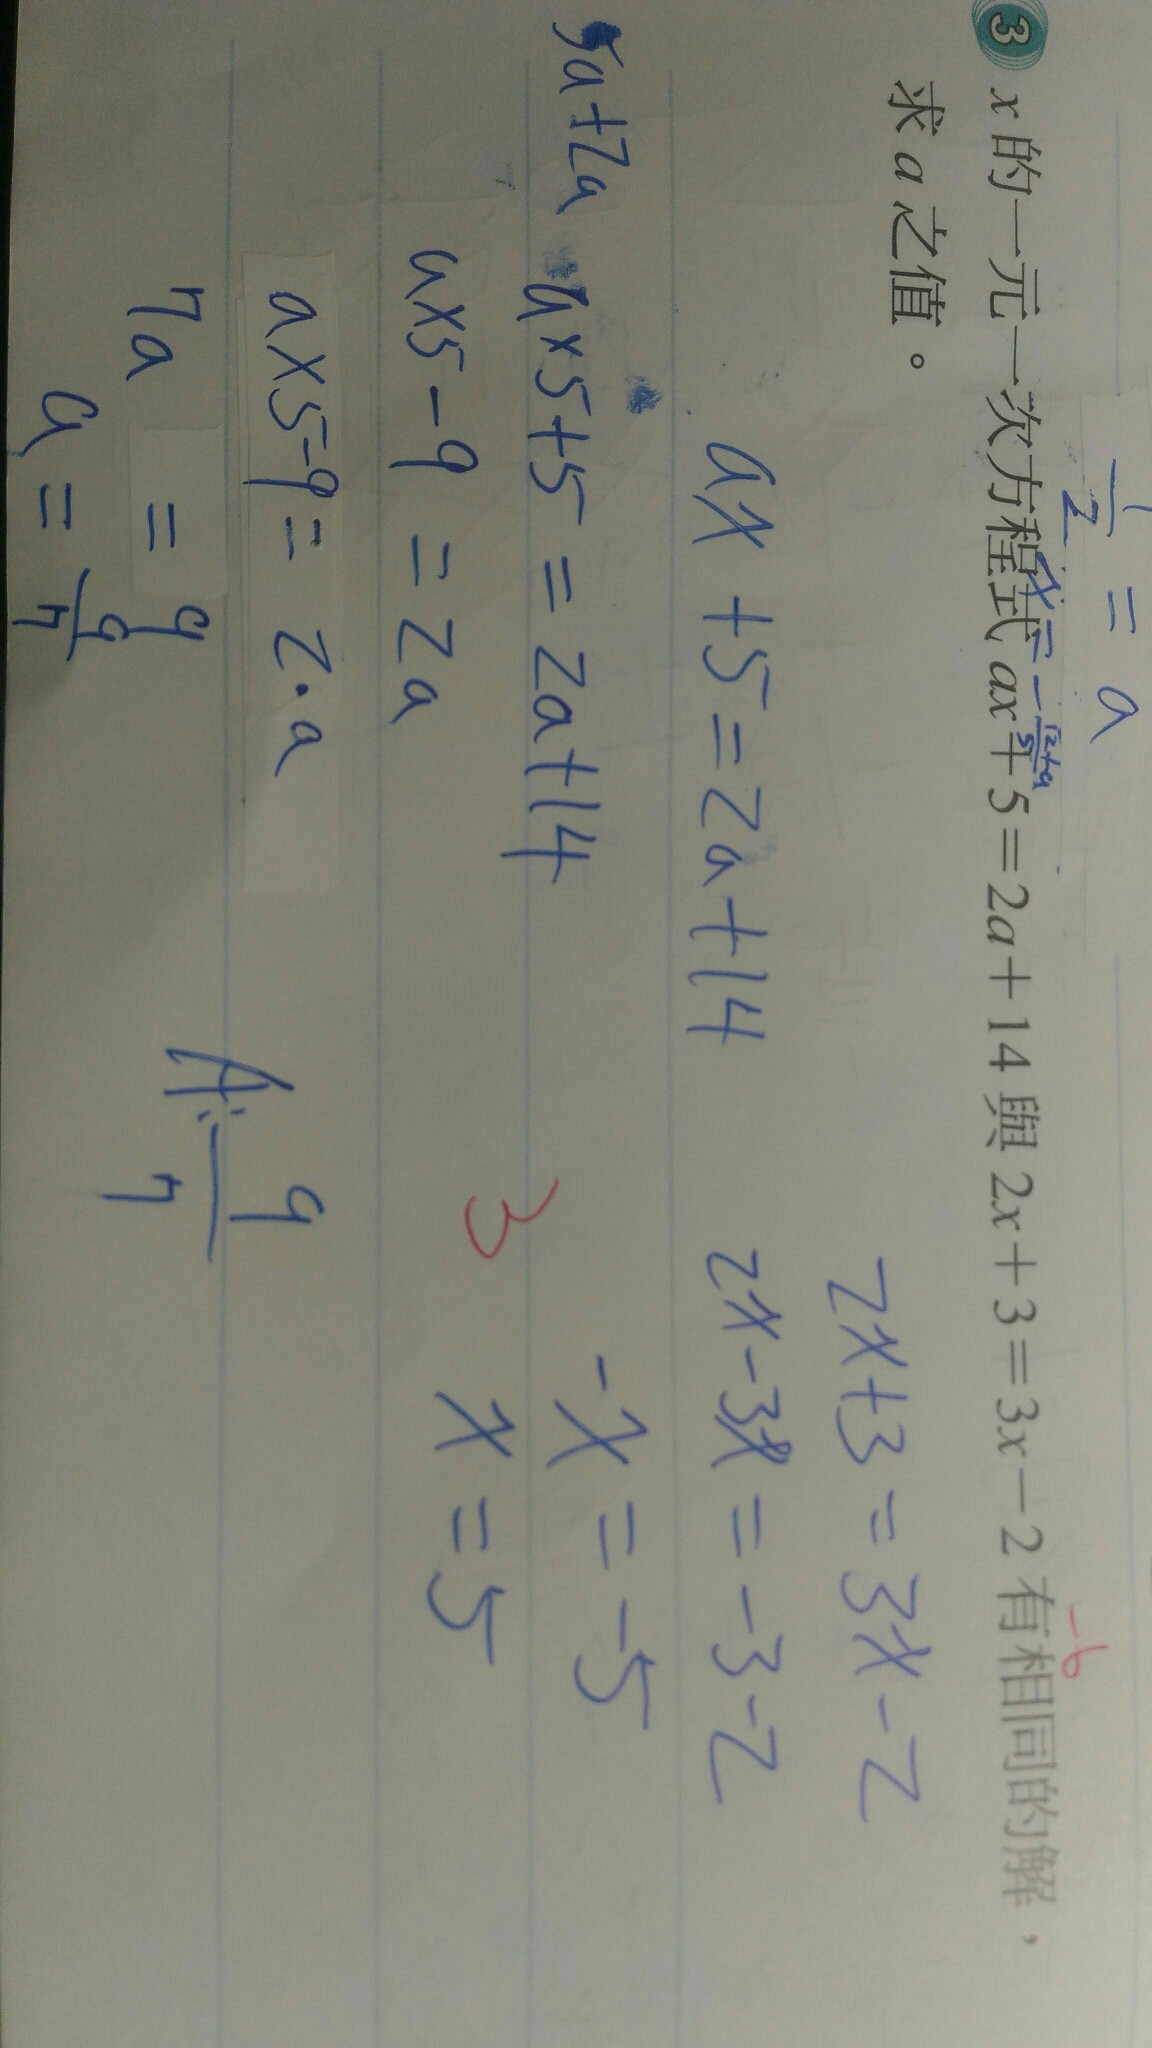 1/2 = a
x = -12+a/5
-6
3 x的一元一次方程式 ax+5=2a+14 與 2x+3=3x-2 有相同的解，
求 a 之值。
2x+3=3x-2
ax+5=2a+14
2x-3x=-3-2
5a+2a
a×5+5=2a+14
-x=-5
a×5-9=2a
3
x=5
a×5-9=2·a
7a=9
A:9/7
a=9/7